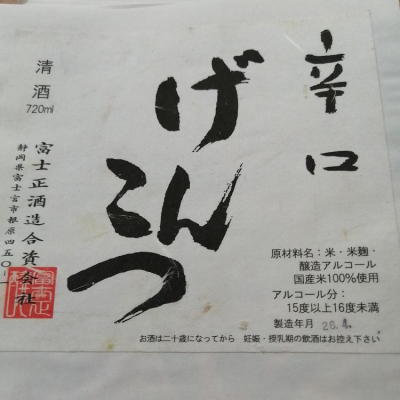 辛口
げんこつ
清酒
720ml
富士正酒造合資会社
静岡県富士宮市根原四五〇-一
原材料名：米・米麹・
醸造アルコール
国産米100%使用
アルコール分：
15度以上16度未満
製造年月 26.4.
お酒は二十歳になってから 妊娠・授乳期の飲酒はお控え下さい